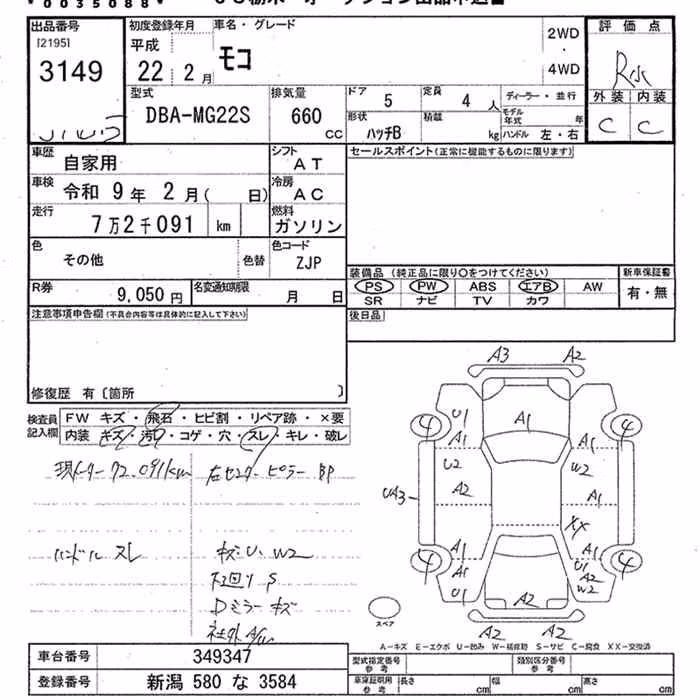 0035088
出品番号 初度登録年月 車名・グレード 2WD ・ 4WD 評価点
[2195] 平成
3149 22 2月 モコ
型式 排気量 ドア 定員 ディーラー・並行 外装 内装
DBA-MG22S 660 CC 5 4人 モデル年式 年 C C
形状 積載
ハッチB kg ハンドル 左・右
車歴 自家用 シフト AT セールスポイント(正常に機能するものに限ります)
車検 令和 9年 2月( 日) 冷房 AC
走行 7万2千091 km 燃料 ガソリン
色 その他 色替 色コード ZJP
装備品 (純正品に限り○をつけてください) 新車保証書
R券 9,050円 名変通知期限 月 日 PS PW ABS エアB AW 有・無
SR ナビ TV カワ
注意事項申告欄(不具合内容等は具体的に記入して下さい) 後日品
修復歴 有〔箇所 〕
検査員記入欄 FW キズ・飛石・ヒビ割・リペア跡・×要
内装 キズ・汚れ・コゲ・穴・スレ・キレ・破レ
現メーター 72,091km 右センターピラー BP
ハンドル スレ キズU、W2
下廻り S
Dミラーキズ
社外A/W
A3 A2
U1 A1
4 A1 A1 4
U2 W2
UA3 A2 A1
XX
4 A1 A1 4
A1 U1
U1 A2 W2
A2 A2
A2 A2
スペア
A-キズ E-エクボ U-凹み W-補修跡 S-サビ C-腐食 XX-交換済
車台番号 349347 型式指定番号 参考 類別区分番号 参考
登録番号 新潟 580 な 3584 車庫証明用 参考 長さ cm 幅 cm 高さ cm